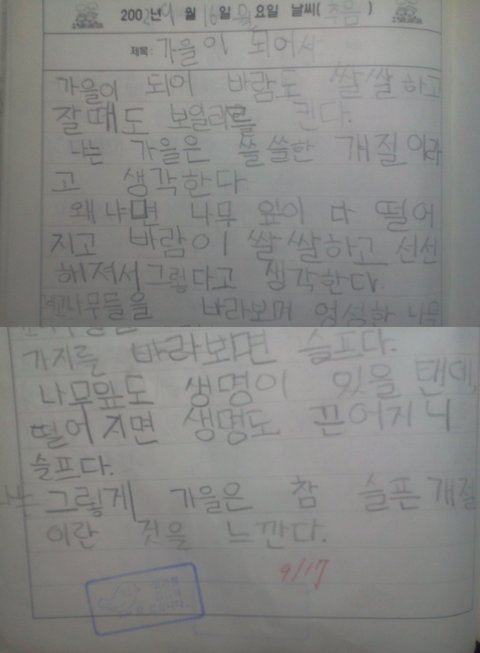 200 년 월 16일 요일 날씨( 추움 )
제목: 가을이 되어서
가을이 되어 바람도 쌀쌀하고
잘때도 보일러를 킨다.
나는 가을은 쓸쓸한 개절이라
고 생각한다
왜냐면 나무 잎이 다 떨어
지고 바람이 쌀쌀하고 선선
해져서 그렇다고 생각한다.
나무들을 바라보며 엉성한 나무
가지를 바라보면 슬프다.
나무잎도 생명이 있을 탠데,
떨어지면 생명도 끈어지니
슬프다.
나는 그렇게 가을은 참 슬픈 개절
이란 것을 느낀다.
9/17